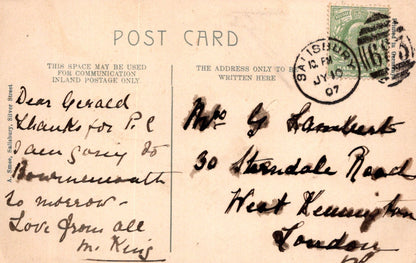 POST CARD
THIS SPACE MAY BE USED
FOR COMMUNICATION
INLAND POSTAGE ONLY
THE ADDRESS ONLY TO BE
WRITTEN HERE
SALISBURY
12 PM
JY 10
07
683
A. Smee, Salisbury, Silver Street
Dear Gerald
Thanks for P.C
I am going to
Bournemouth
to morrow -
Love from all
M. King
G Lambert
30 Sterndale Road
West Kennington
London
W